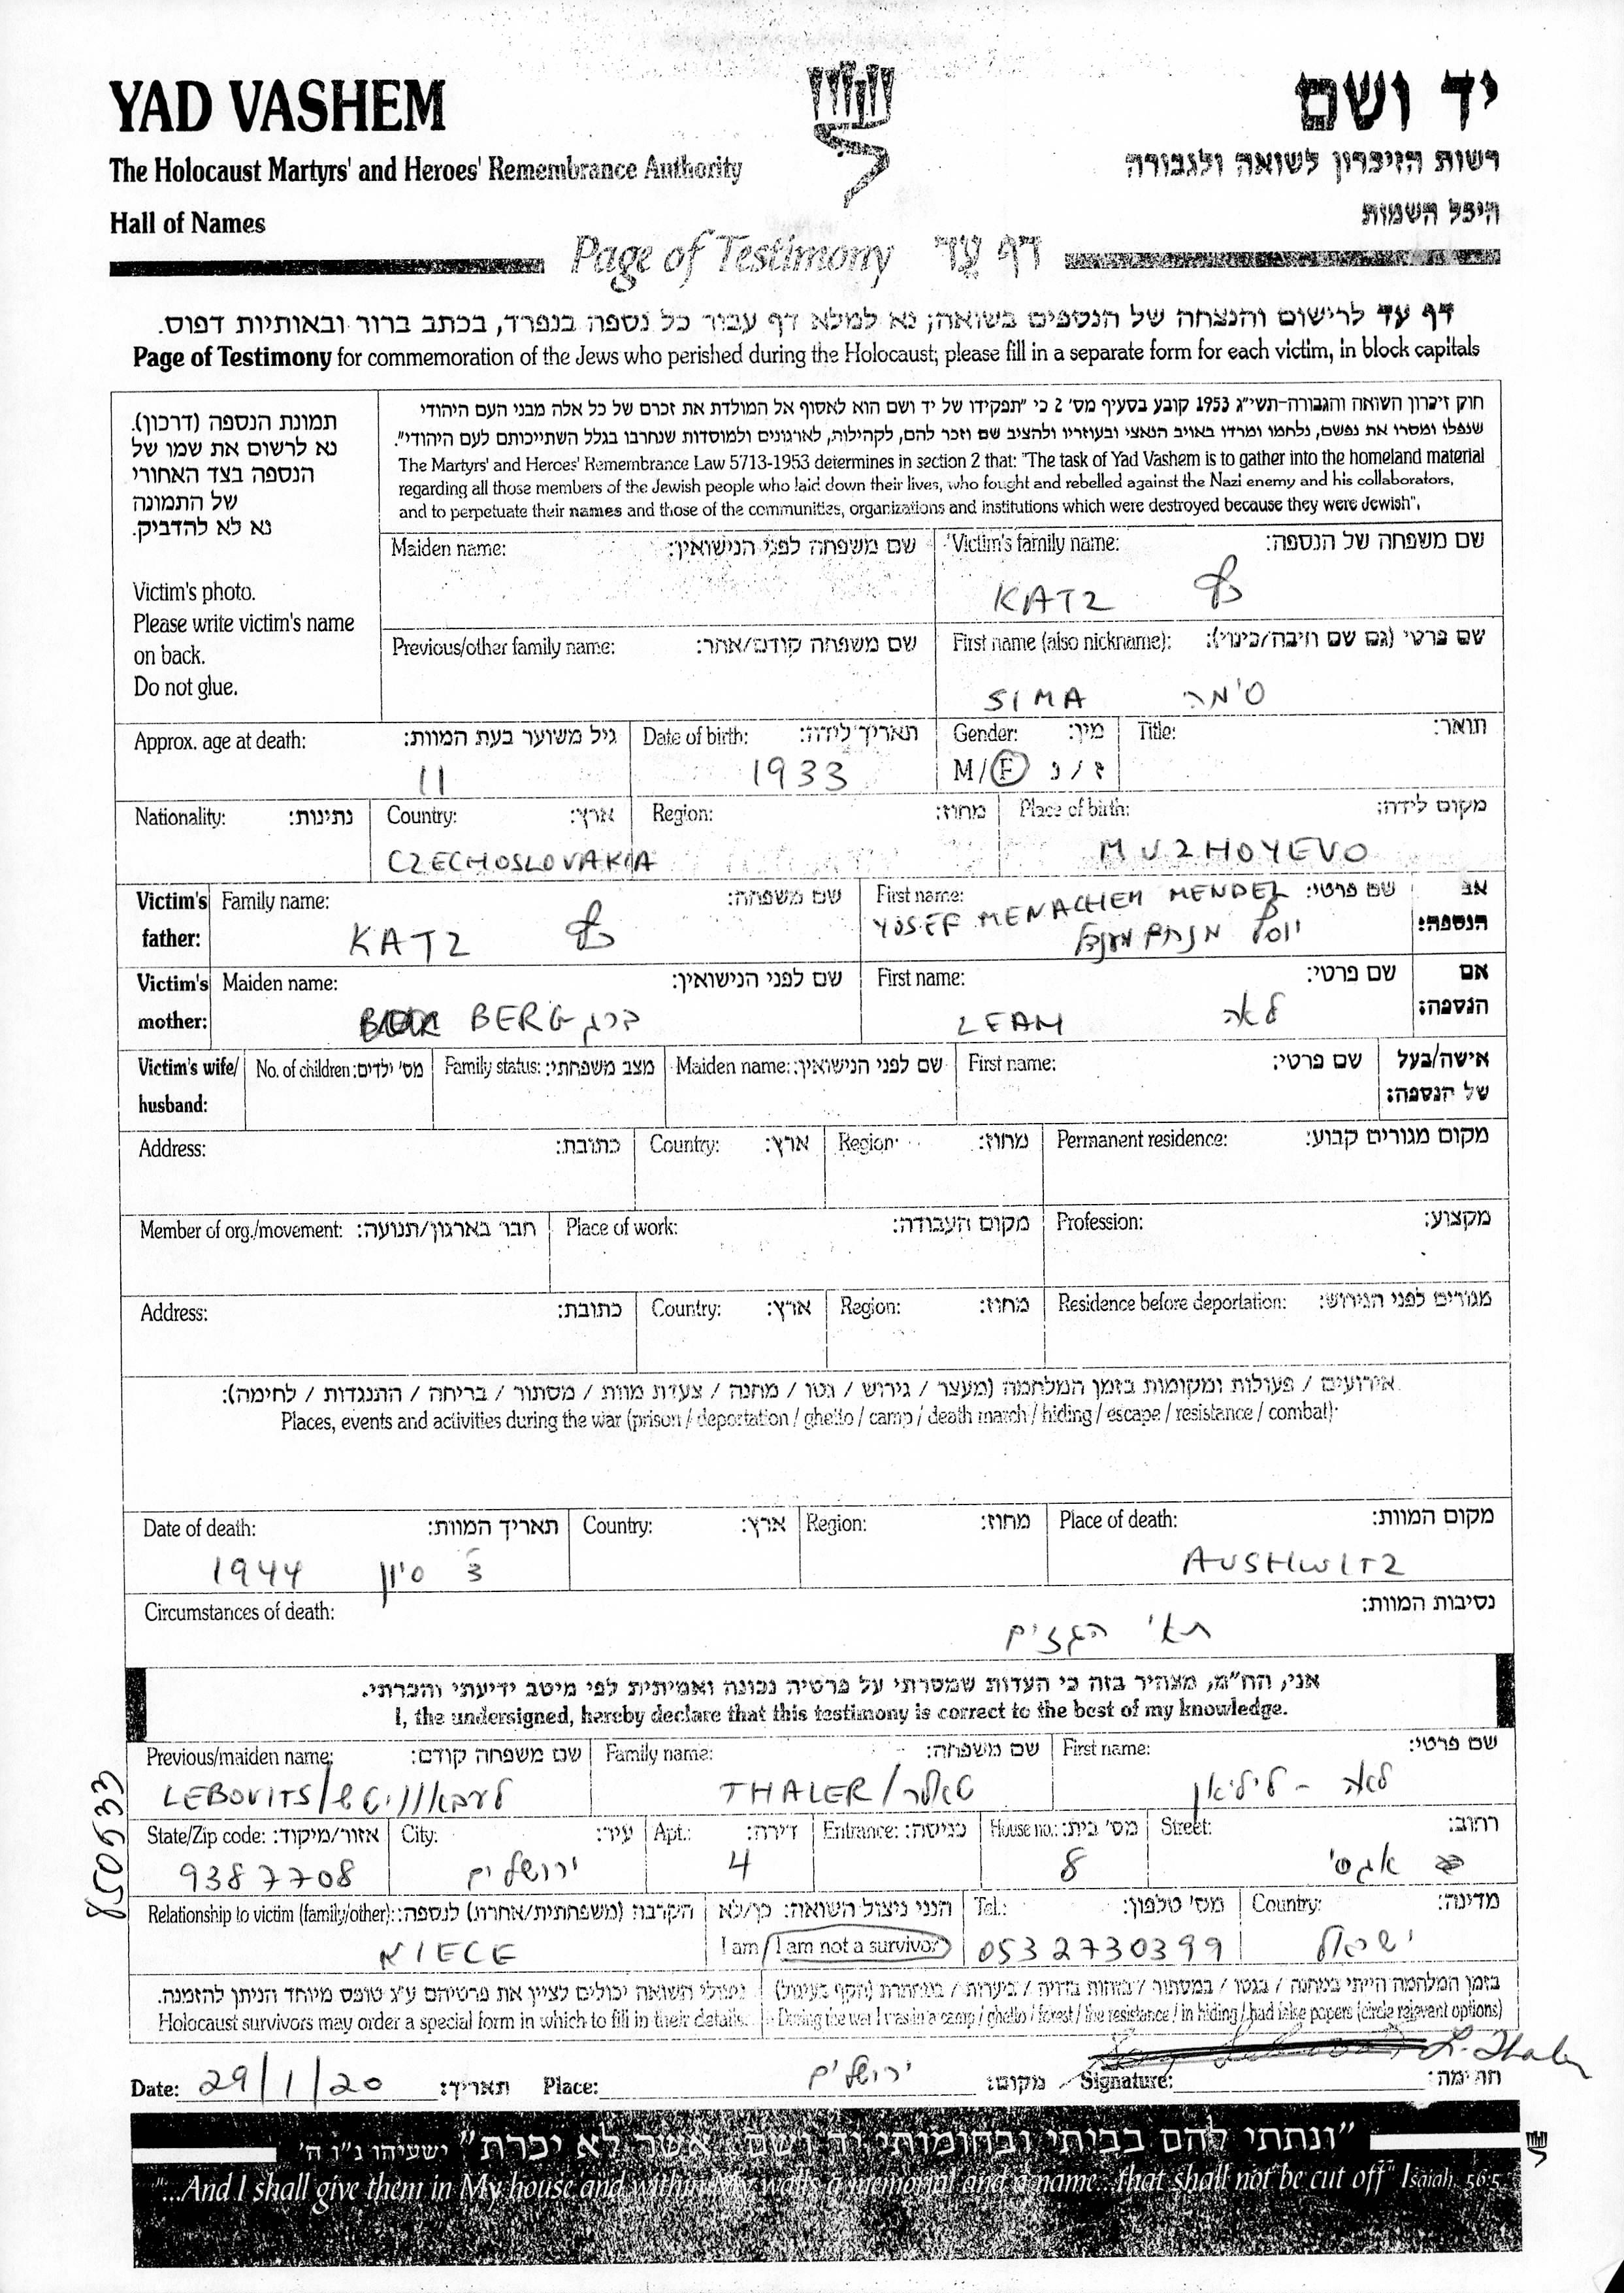 YAD VASHEM
יד ושם
The Holocaust Martyrs' and Heroes' Remembrance Authority
רשות הזיכרון לשואה ולגבורה
Hall of Names
היכל השמות
Page of Testimony דף עד
דף עד לרישום והנצחה של הנספים בשואה; נא למלא דף עבור כל נספה בנפרד, בכתב ברור ובאותיות דפוס.
Page of Testimony for commemoration of the Jews who perished during the Holocaust; please fill in a separate form for each victim, in block capitals
תמונת הנספה (דרכון).
נא לרשום את שמו של
הנספה בצד האחורי
של התמונה
נא לא להדביק.
Victim's photo.
Please write victim's name
on back.
Do not glue.
חוק זיכרון השואה והגבורה-תשי"ג 1953 קובע בסעיף מס' 2 כי "תפקידו של יד ושם הוא לאסוף אל המולדת את זכרם של כל אלה מבני העם היהודי
שנפלו ומסרו את נפשם, נלחמו ומרדו באויב הנאצי ובעוזריו ולהציב שם וזכר להם, לקהילות, לארגונים ולמוסדות שנחרבו בגלל השתייכותם לעם היהודי".
The Martyrs' and Heroes' Remembrance Law 5713-1953 determines in section 2 that: "The task of Yad Vashem is to gather into the homeland material
regarding all those members of the Jewish people who laid down their lives, who fought and rebelled against the Nazi enemy and his collaborators,
and to perpetuate their names and those of the communities, organizations and institutions which were destroyed because they were Jewish".
Maiden name: שם משפחה לפני הנישואין:
Victim's family name: שם משפחה של הנספה:
KATZ כץ
Previous/other family name: שם משפחה קודם/אחר:
First name (also nickname): שם פרטי (גם שם חיבה/כינוי):
SIMA סימה
Approx. age at death: גיל משוער בעת המוות:
11
Date of birth: תאריך לידה:
1933
Gender: מין:
M/F ז/נ
Title: תואר:
Nationality: נתינות:
Country: ארץ:
CZECHOSLOVAKIA
Region: מחוז:
Place of birth: מקום לידה:
MUZHOYEVO
Victim's father: Family name: שם משפחה:
KATZ כץ
First name: שם פרטי: אב הנספה:
YOSEF MENACHEM MENDEL
יוסף מנחם מענדל
Victim's mother: Maiden name: שם לפני הנישואין:
BERG ברג
First name: שם פרטי: אם הנספה:
LEAH לאה
Victim's wife/husband: No. of children: מס' ילדים: Family status: מצב משפחתי: Maiden name: שם לפני הנישואין: First name: שם פרטי: אישה/בעל של הנספה:
Address: כתובת: Country: ארץ: Region: מחוז: Permanent residence: מקום מגורים קבוע:
Member of org./movement: חבר בארגון/תנועה: Place of work: מקום העבודה: Profession: מקצוע:
Address: כתובת: Country: ארץ: Region: מחוז: Residence before deportation: מגורים לפני הגירוש:
אירועים / פעולות ומקומות בזמן המלחמה (מעצר / גירוש / גטו / מחנה / צעדת מוות / מסתור / בריחה / התנגדות / לחימה):
Places, events and activities during the war (prison / deportation / ghetto / camp / death march / hiding / escape / resistance / combat):
Date of death: תאריך המוות:
1944 סיון 3
Country: ארץ: Region: מחוז:
Place of death: מקום המוות:
AUSHWITZ
Circumstances of death: נסיבות המוות:
תאי הגזים
אני, הח"מ, מצהיר בזה כי העדות שמסרתי על פרטיה נכונה ואמיתית לפי מיטב ידיעתי והכרתי.
I, the undersigned, hereby declare that this testimony is correct to the best of my knowledge.
Previous/maiden name: שם משפחה קודם:
LEBOVITS/לעבאוויטש
Family name: שם משפחה:
THALER/טאלר
First name: שם פרטי:
לאה - ליליאן
State/Zip code: אזור/מיקוד:
9387708
City: עיר:
ירושלים
Apt.: דירה:
4
Entrance: כניסה:
House no.: מס' בית:
8
Street: רחוב:
אגסי
Relationship to victim (family/other): הקרבה (משפחתית/אחרת) לנספה:
NIECE
הנני ניצול השואה: כן/לא
I am / I am not a survivor
Tel.: מס' טלפון:
0532730399
Country: מדינה:
ישראל
ניצולי השואה יכולים לציין את פרטיהם ע"ג טופס מיוחד הניתן להזמנה.
Holocaust survivors may order a special form in which to fill in their details.
בזמן המלחמה הייתי במחנה / בגטו / במסתור / בזהות בדויה / ביערות / במחתרת (הקף בעיגול)
During the war I was in a camp / ghetto / forest / the resistance / in hiding / had false papers (circle relevant options)
Date: 29/1/20 תאריך: Place: ירושלים מקום: Signature: L. Thaler חתימה:
8506533
"ונתתי להם בביתי ובחומותי יד ושם... אשר לא יכרת" ישעיהו נ"ו ה'
"...And I shall give them in My house and within My walls a memorial and a name...that shall not be cut off" Isaiah, 56:5